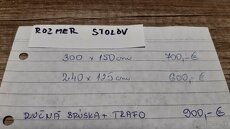 ROZMER STOLOV
300 x 150cm 700,-€
240 x 125cm 600,-€
RUČNÁ BRÚSKA + TRAFO 900,-€